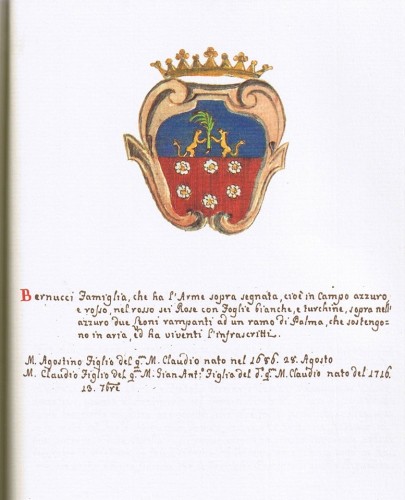 Bernucci Famiglia, che ha l'Arme sopra segnata, cioè in Campo azzuro,
e rosso, nel rosso sei Rose con Foglie bianche, e turchine, sopra nell'
azzuro due Leoni rampanti ad un ramo di Palma, che sostengo=
no in aria, ed ha viventi l'infrascritti.
M. Agostino Figlio del q.m M. Claudio nato nel 1686. 28. Agosto
M. Claudio Figlio del q.m M. Gian Ant.o Figlio del d.o q.m M. Claudio nato del 1716.
13. 7bre